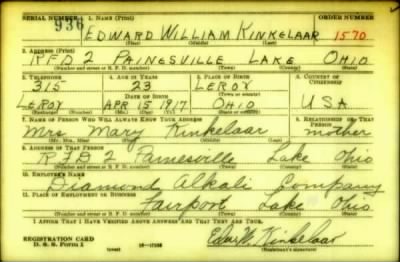 SERIAL NUMBER 1. NAME (Print) ORDER NUMBER
936 EDWARD WILLIAM KINKELAAR 1570
(First) (Middle) (Last)
2. ADDRESS (Print)
RFD 2 PAINESVILLE LAKE OHIO
(Number and street or R. F. D. number) (Town) (County) (State)
3. TELEPHONE 4. AGE IN YEARS 5. PLACE OF BIRTH 6. COUNTRY OF CITIZENSHIP
315 23 LEROY
DATE OF BIRTH
LEROY APR 15 1917 OHIO USA
(Exchange) (Number) (Mo.) (Day) (Yr.) (State or country)
7. NAME OF PERSON WHO WILL ALWAYS KNOW YOUR ADDRESS 8. RELATIONSHIP OF THAT PERSON
Mrs Mary Kinkelaar mother
(Mr., Mrs., Miss) (First) (Middle) (Last)
9. ADDRESS OF THAT PERSON
RFD 2 Painesville Lake Ohio
(Number and street or R. F. D. number) (Town) (County) (State)
10. EMPLOYER'S NAME
Diamond Alkali Company
11. PLACE OF EMPLOYMENT OR BUSINESS
Fairport Lake Ohio
(Number and street or R. F. D. number) (Town) (County) (State)
I AFFIRM THAT I HAVE VERIFIED ABOVE ANSWERS AND THAT THEY ARE TRUE.
REGISTRATION CARD
D. S. S. Form 1
(Registrant's signature)